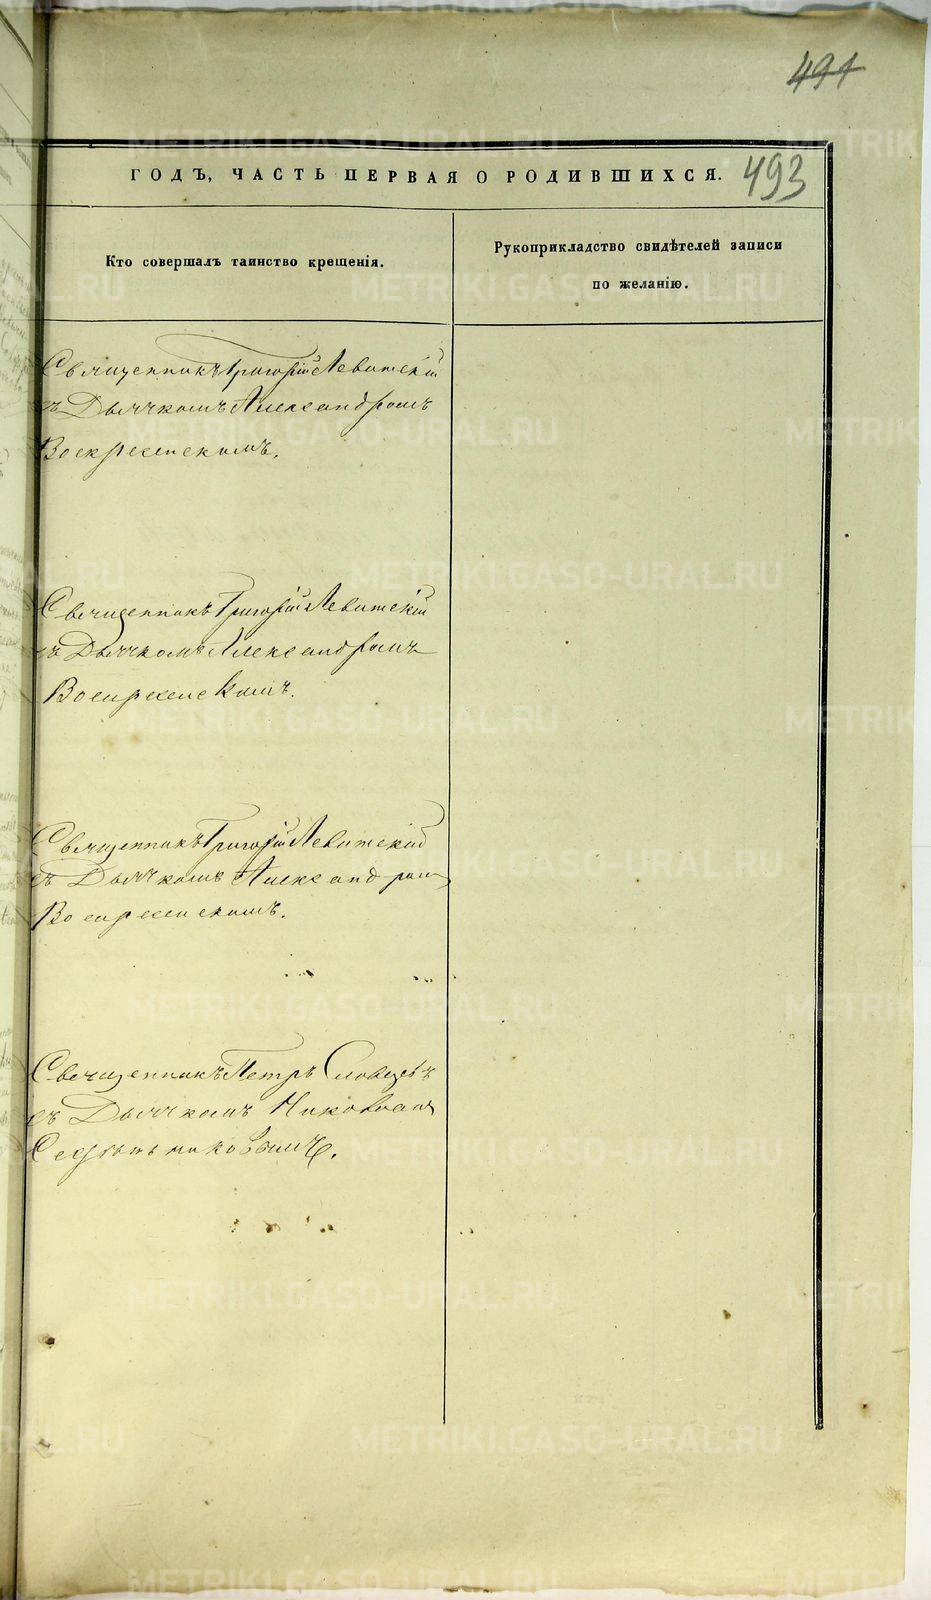 491
ГОДЪ, ЧАСТЬ ПЕРВАЯ О РОДИВШИХСЯ. 493
Кто совершалъ таинство крещенія.
Рукоприкладство свидѣтелей записи
по желанію.
Священникъ Григорій Левитскій
съ Дьячкомъ Александромъ
Воскресенскимъ.
Священникъ Григорій Левитскій
съ Дьячкомъ Александромъ
Воскресенскимъ.
Священникъ Григорій Левитскій
съ Дьячкомъ Александромъ
Воскресенскимъ.
Священникъ Петръ Словцевъ
съ Дьячкомъ Николаемъ
METRIKI.GASO-URAL.RU